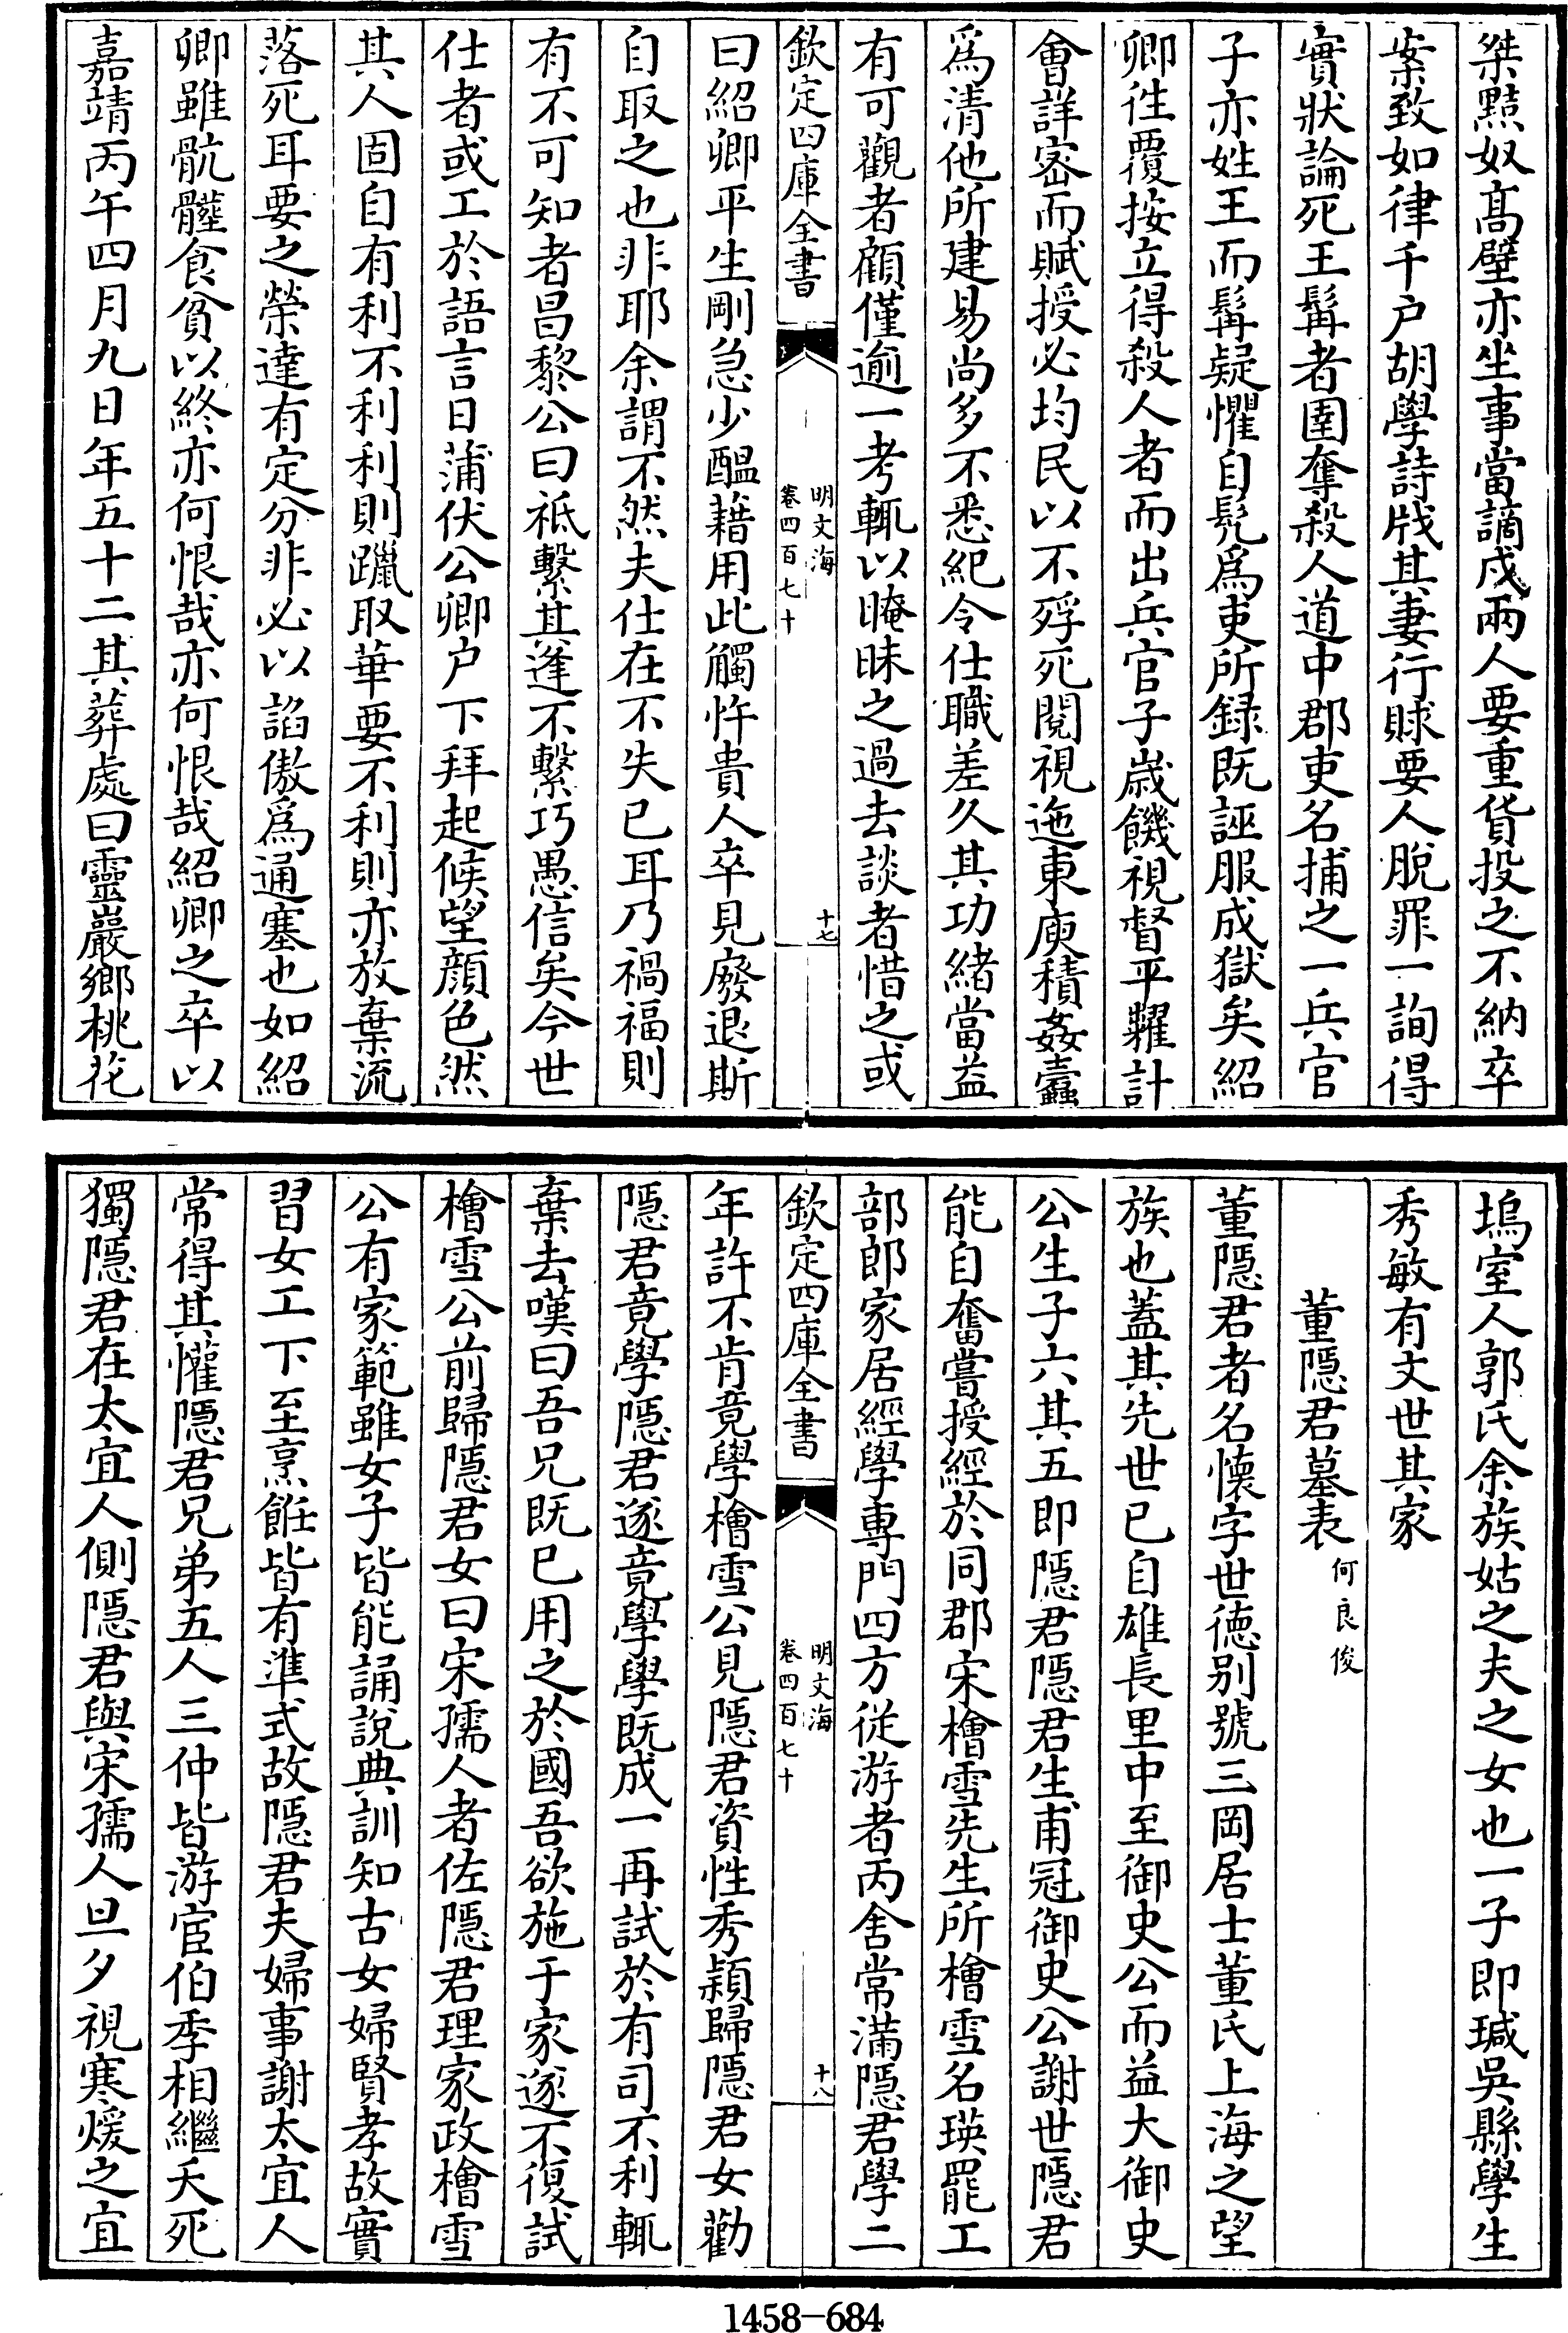 桀黠奴髙壁亦坐事當謫戍兩人要重貨投之不納卒
案致如律千户胡學詩戕其妻行賕要人脫罪一詢得
實狀論死王髯者圉奪殺人道中郡吏名捕之一兵官
子亦姓王而髯疑懼自髡爲吏所録既誣服成獄矣紹
卿徃覆按立得殺人者而出兵官子嵗饑視督平糶計
會詳宻而賦授必均民以不殍死閱視迤東庾積姦蠧
爲清他所建易尚多不悉紀令仕職差久其功緒當益
有可觀者顧僅逾一考輒以晻昧之過去談者惜之或
欽定四庫全書
明文海
卷四百七十
十七
曰紹卿平生剛急少醖藉用此觸忤貴人卒見廢退斯
自取之也非耶余謂不然夫仕在不失已耳乃禍福則
有不可知者昌黎公曰祗繫其逢不繫巧愚信矣今世
仕者或工於語言日蒲伏公卿户下拜起候望顔色然
其人固自有利不利利則躐取華要不利則亦放棄流
落死耳要之榮達有定分非必以諂傲爲通塞也如紹
卿雖骯髒食貧以終亦何恨哉亦何恨哉紹卿之卒以
嘉靖丙午四月九日年五十二其葬處曰靈巖鄉桃花
塢室人郭氏余族姑之夫之女也一子即瑊吳縣學生
秀敏有文世其家
董隱君墓表何良俊
董隱君者名懷字世徳别號三岡居士董氏上海之望
族也蓋其先世已自雄長里中至御史公而益大御史
公生子六其五即隱君隱君生甫冠御史公謝世隱君
能自奮嘗授經於同郡宋檜雪先生所檜雪名瑛罷工
部郎家居經學専門四方從游者丙舍常滿隱君學二
欽定四庫全書
明文海
卷四百七十
十八
年許不肯竟學檜雪公見隱君資性秀穎歸隱君女勸
隱君竟學隱君遂竟學學既成一再試於有司不利輒
棄去嘆曰吾兄既已用之於國吾欲施于家遂不復試
檜雪公前歸隱君女曰宋孺人者佐隱君理家政檜雪
公有家範雖女子皆能誦說典訓知古女婦賢孝故實
習女工下至烹飪皆有準式故隱君夫婦事謝太宜人
常得其懽隱君兄弟五人三仲皆游宦伯季相繼夭死
獨隱君在太宜人側隱君與宋孺人旦夕視寒煖之宜
1458-684